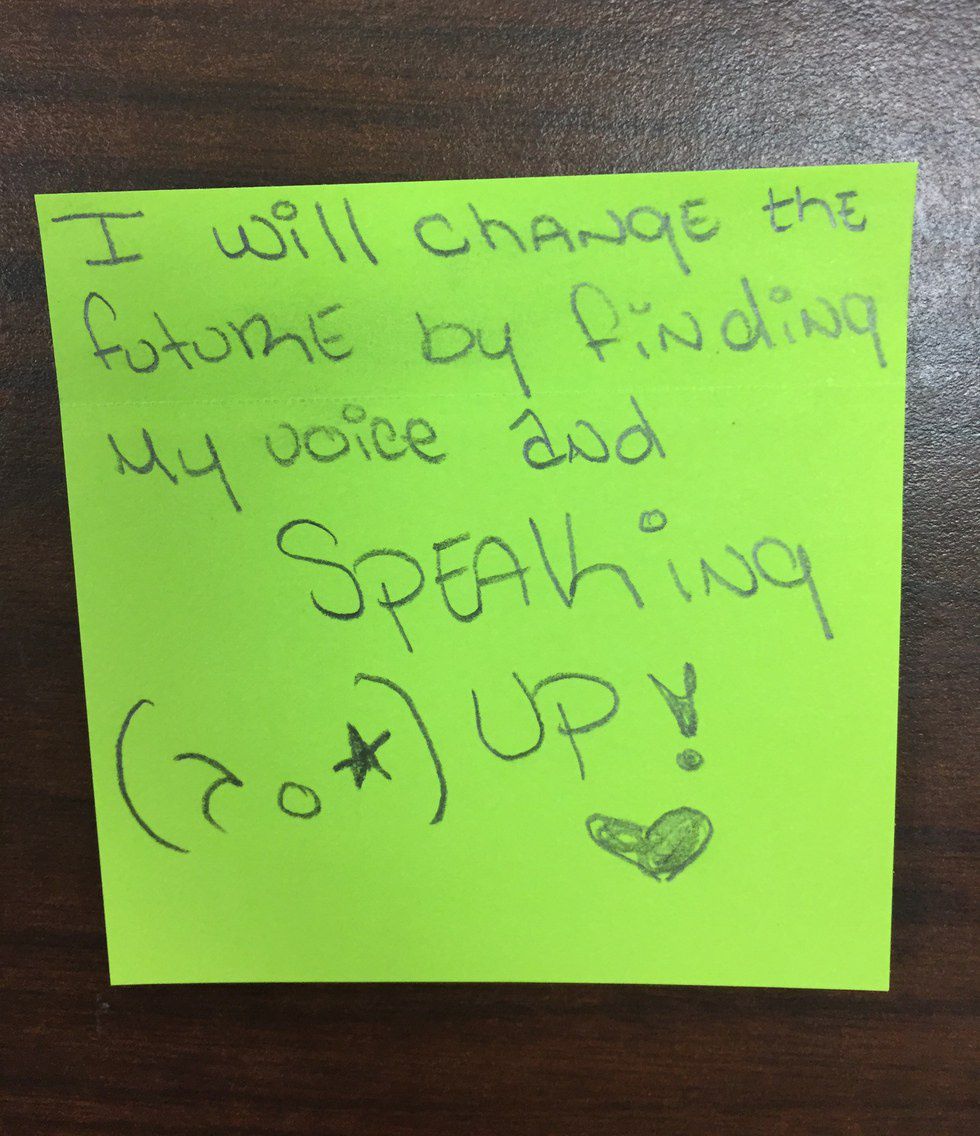 I will chANgE thE
futuRE by fiNdiNg
My voice aNd
SpEAkiNg
(っ。★) UP!
♥